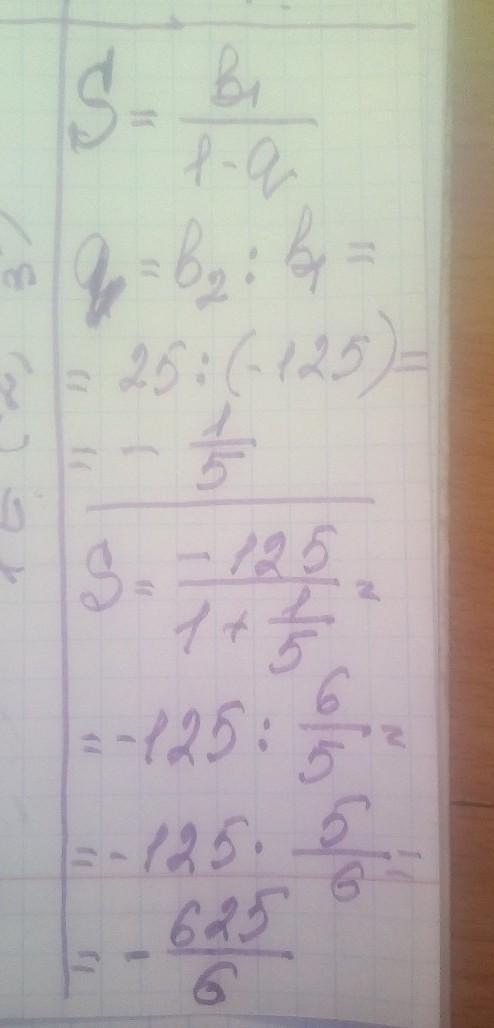 S = b₁/(1-q)
q = b₂ : b₁ =
= 25 : (-125) =
= - 1/5
S = -125/(1 + 1/5) =
= -125 : 6/5 =
= -125 · 5/6 =
= - 625/6